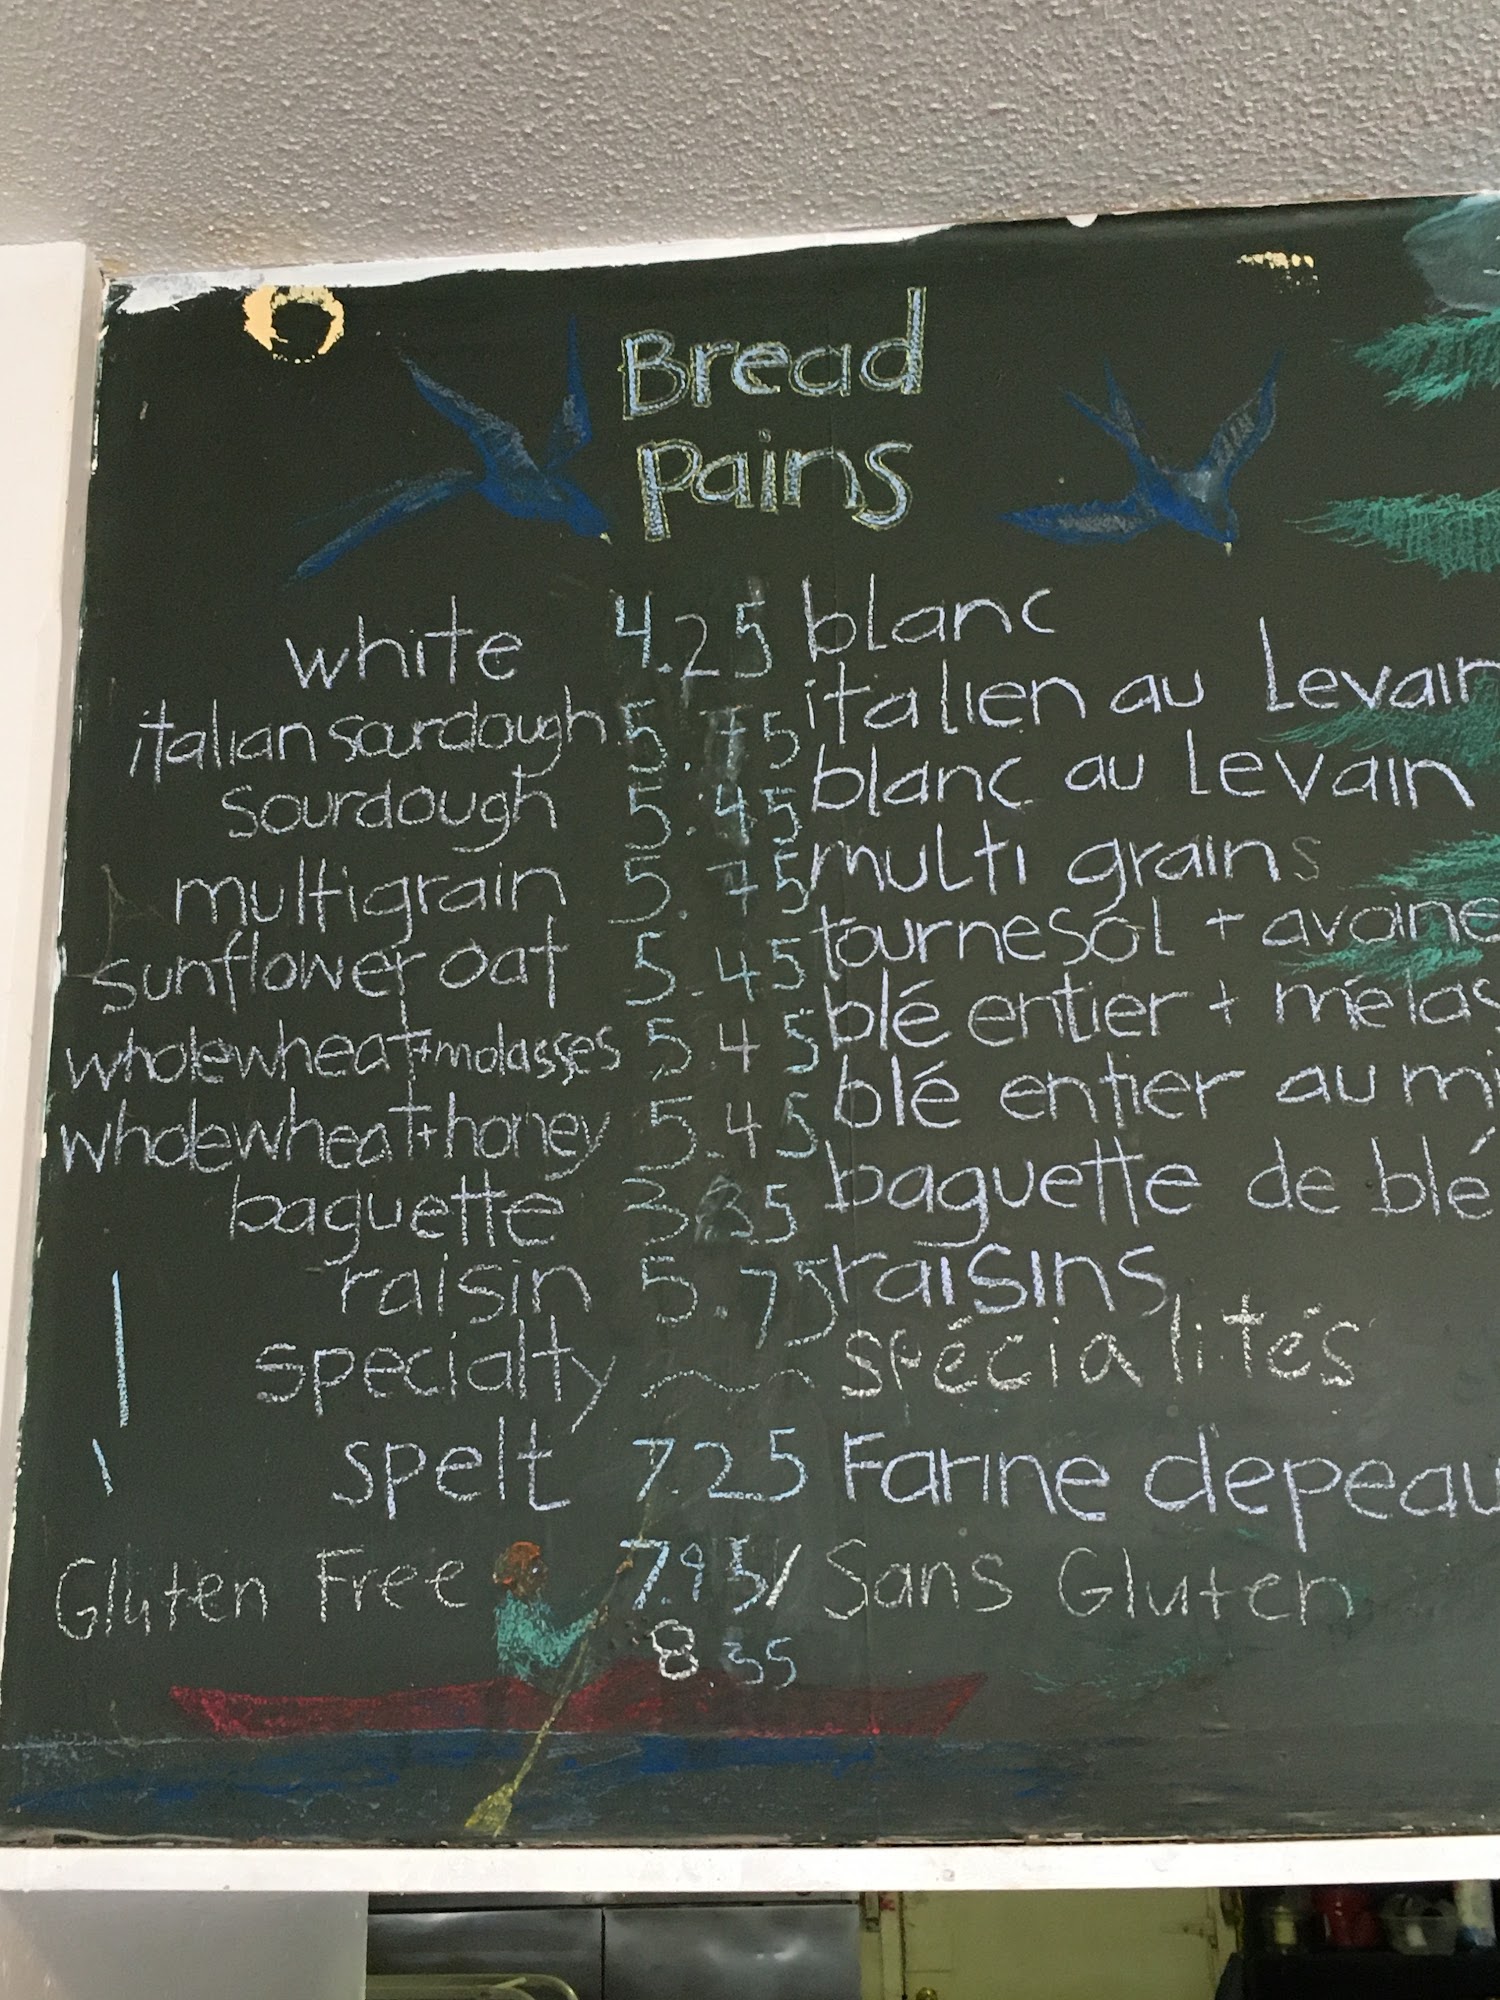 Bread
Pains
white 4.25 blanc
italian sourdough 5.75 italien au Levain
sourdough 5.45 blanc au Levain
multigrain 5.75 multi grains
sunflower oat 5.45 tournesol + avoine
wholewheat+molasses 5.45 blé entier + mélas
wholewheat+honey 5.45 blé entier au mi
baguette 3.85 baguette de blé
raisin 5.75 raisins
specialty ~~~ spécialités
spelt 7.25 Farine depeau
Gluten Free 7.95/ Sans Gluten
8.35